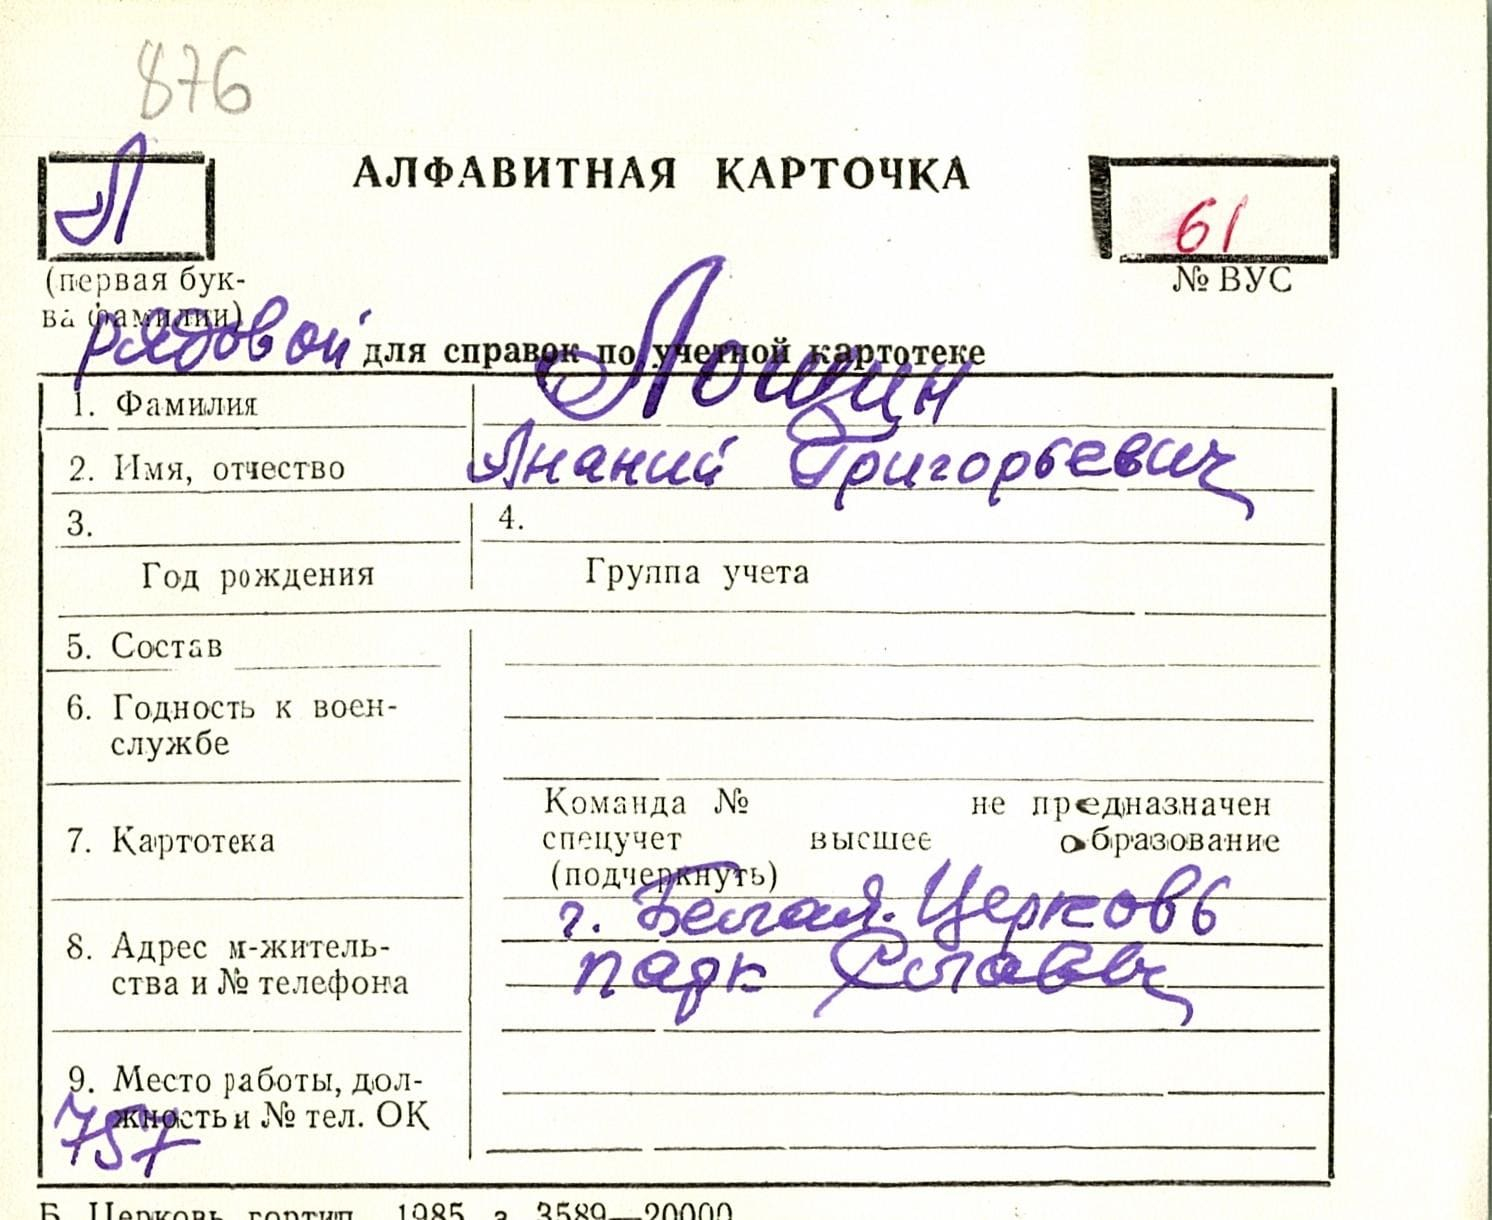 876
Л
АЛФАВИТНАЯ КАРТОЧКА
61
(первая бук-
ва фамилии)
№ ВУС
рядовой
для справок по учетной картотеке
1. Фамилия Лощин
2. Имя, отчество Ананий Григорьевич
3. 4.
Год рождения Группа учета
5. Состав
6. Годность к воен-
службе
7. Картотека
Команда № не предназначен
спецучет высшее образование
(подчеркнуть)
8. Адрес м-житель-
ства и № телефона
г. Белая Церковь
парк Славы
9. Место работы, дол-
жность и № тел. ОК
757
Б. Церковь, гортип. 1985 з. 3589—20000